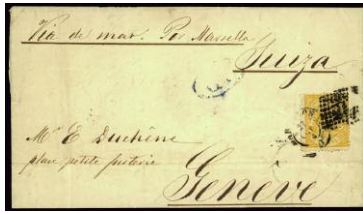 Via de mar. Por Marsella
Suiza
Mr E Duchêne
place petite fusterie
Genève